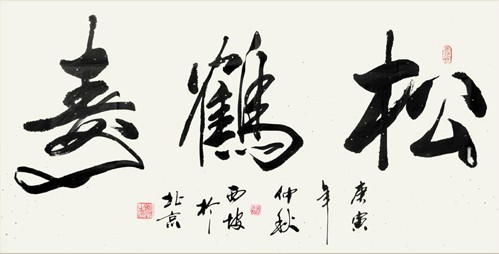 松鶴壽
庚寅
年
仲秋
西坡
於
北京